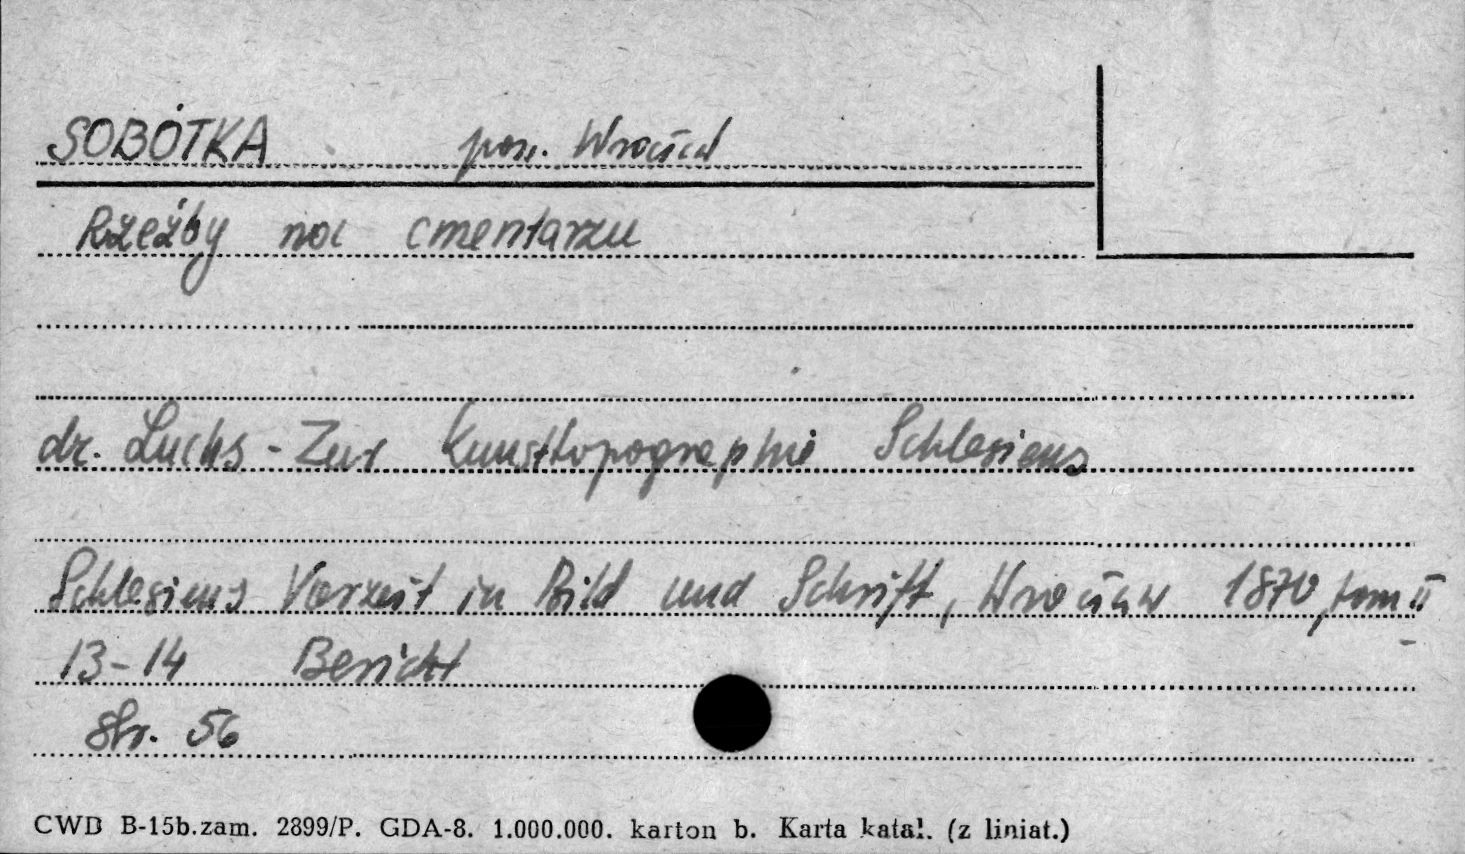 SOBÓTKA pow. Wrocław
Rzeźby na cmentarzu
dr. Luchs - Zur Kunsttopographie Schlesiens
Schlesiens Vorzeit in Bild und Schrift, Wrocław 1870, tom II
13-14 Bericht
Str. 56
CWD B-15b.zam. 2899/P. GDA-8. 1.000.000. karton b. Karta katal. (z liniat.)